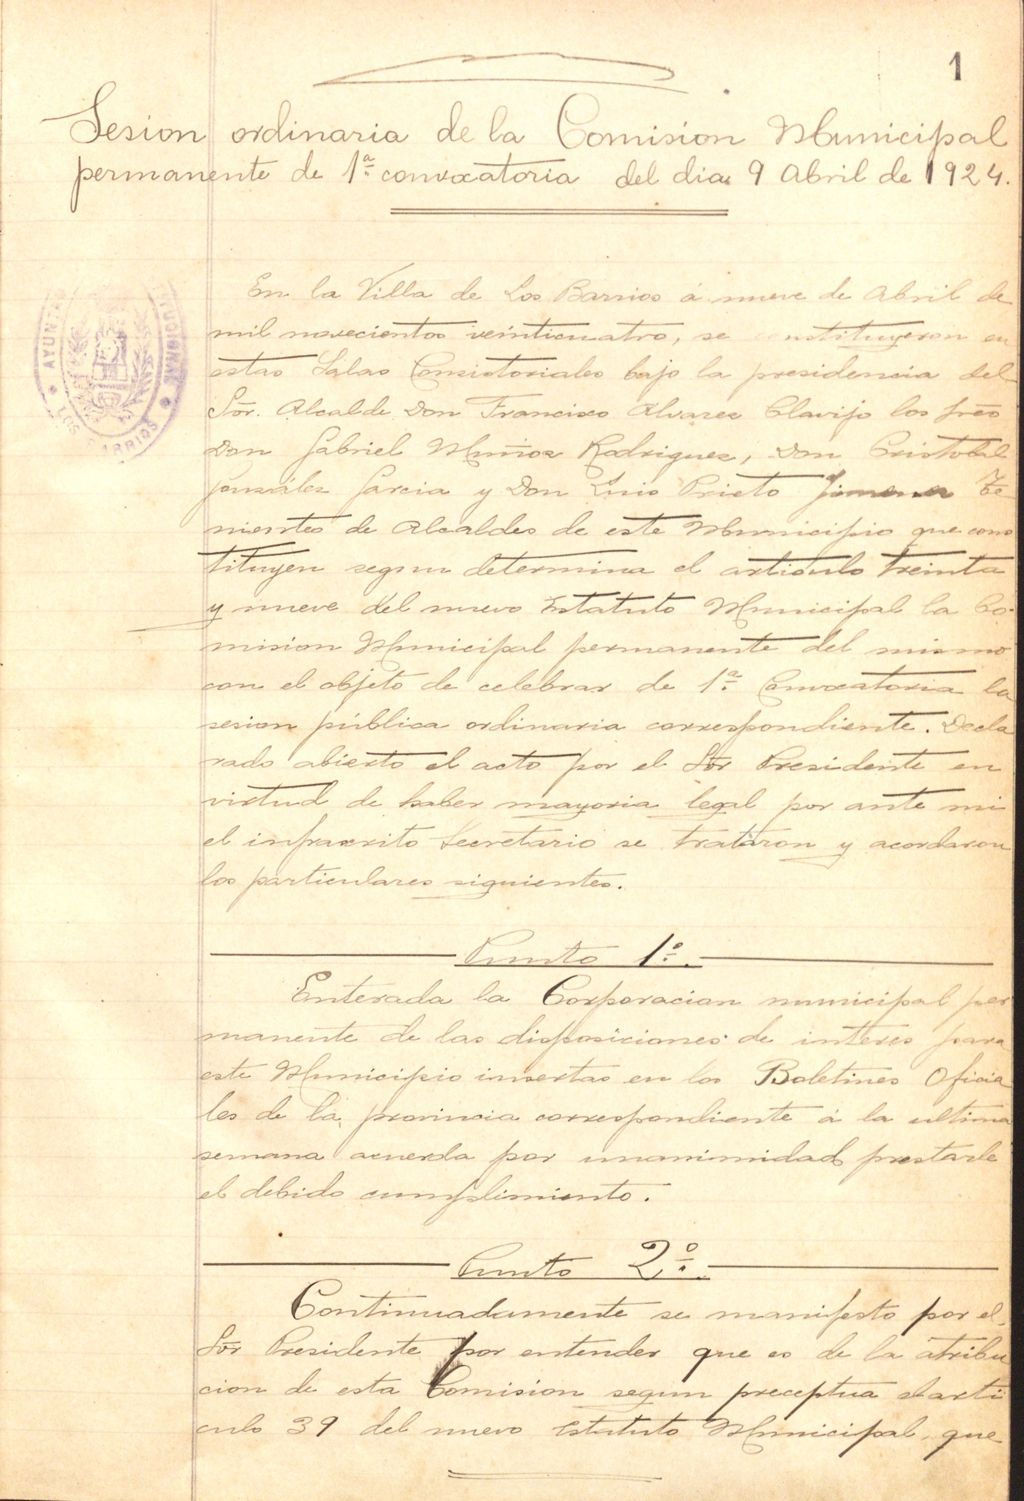 1
Sesion ordinaria de la Comision Municipal
permanente de 1ª convocatoria del dia 9 Abril de 1924.
AYUNTA CUCIONAL
LOS BARRIOS
En la Villa de Los Barrios á nueve de Abril de
mil novecientos veinticuatro, se constituyeron en
estas Salas Consistoriales bajo la presidencia del
Sór. Alcalde Don Francisco Alvarez Clavijo los Sres
Don Gabriel Muñoz Rodriguez, Don Cristobal
González Garcia y Don Luis Prieto Jimena Te-
nientes de Alcaldes de este Municipio que cons
tituyen segun determina el articulo treinta
y nueve del nuevo Estatuto Municipal la Co-
mision Municipal permanente del mismo
con el objeto de celebrar de 1ª Convocatoria la
sesion pública ordinaria correspondiente. Decla
rado abierto el acto por el Sór Presidente en
virtud de haber mayoria legal por ante mi
el infrascrito Secretario se trataron y acordaron
los particulares siguientes.
Punto 1º.
Enterada la Corporacion municipal per
manente de las disposiciones de interes para
este Municipio insertas en los Boletines Oficia
les de la provincia correspondiente á la ultima
semana acuerda por unanimidad prestarle
el debido cumplimiento.
Punto 2º.
Continuadamente se manifesto por el
Sór Presidente por entender que es de la atribu
cion de esta Comision segun preceptua el arti
culo 39 del nuevo Estatuto Municipal, que